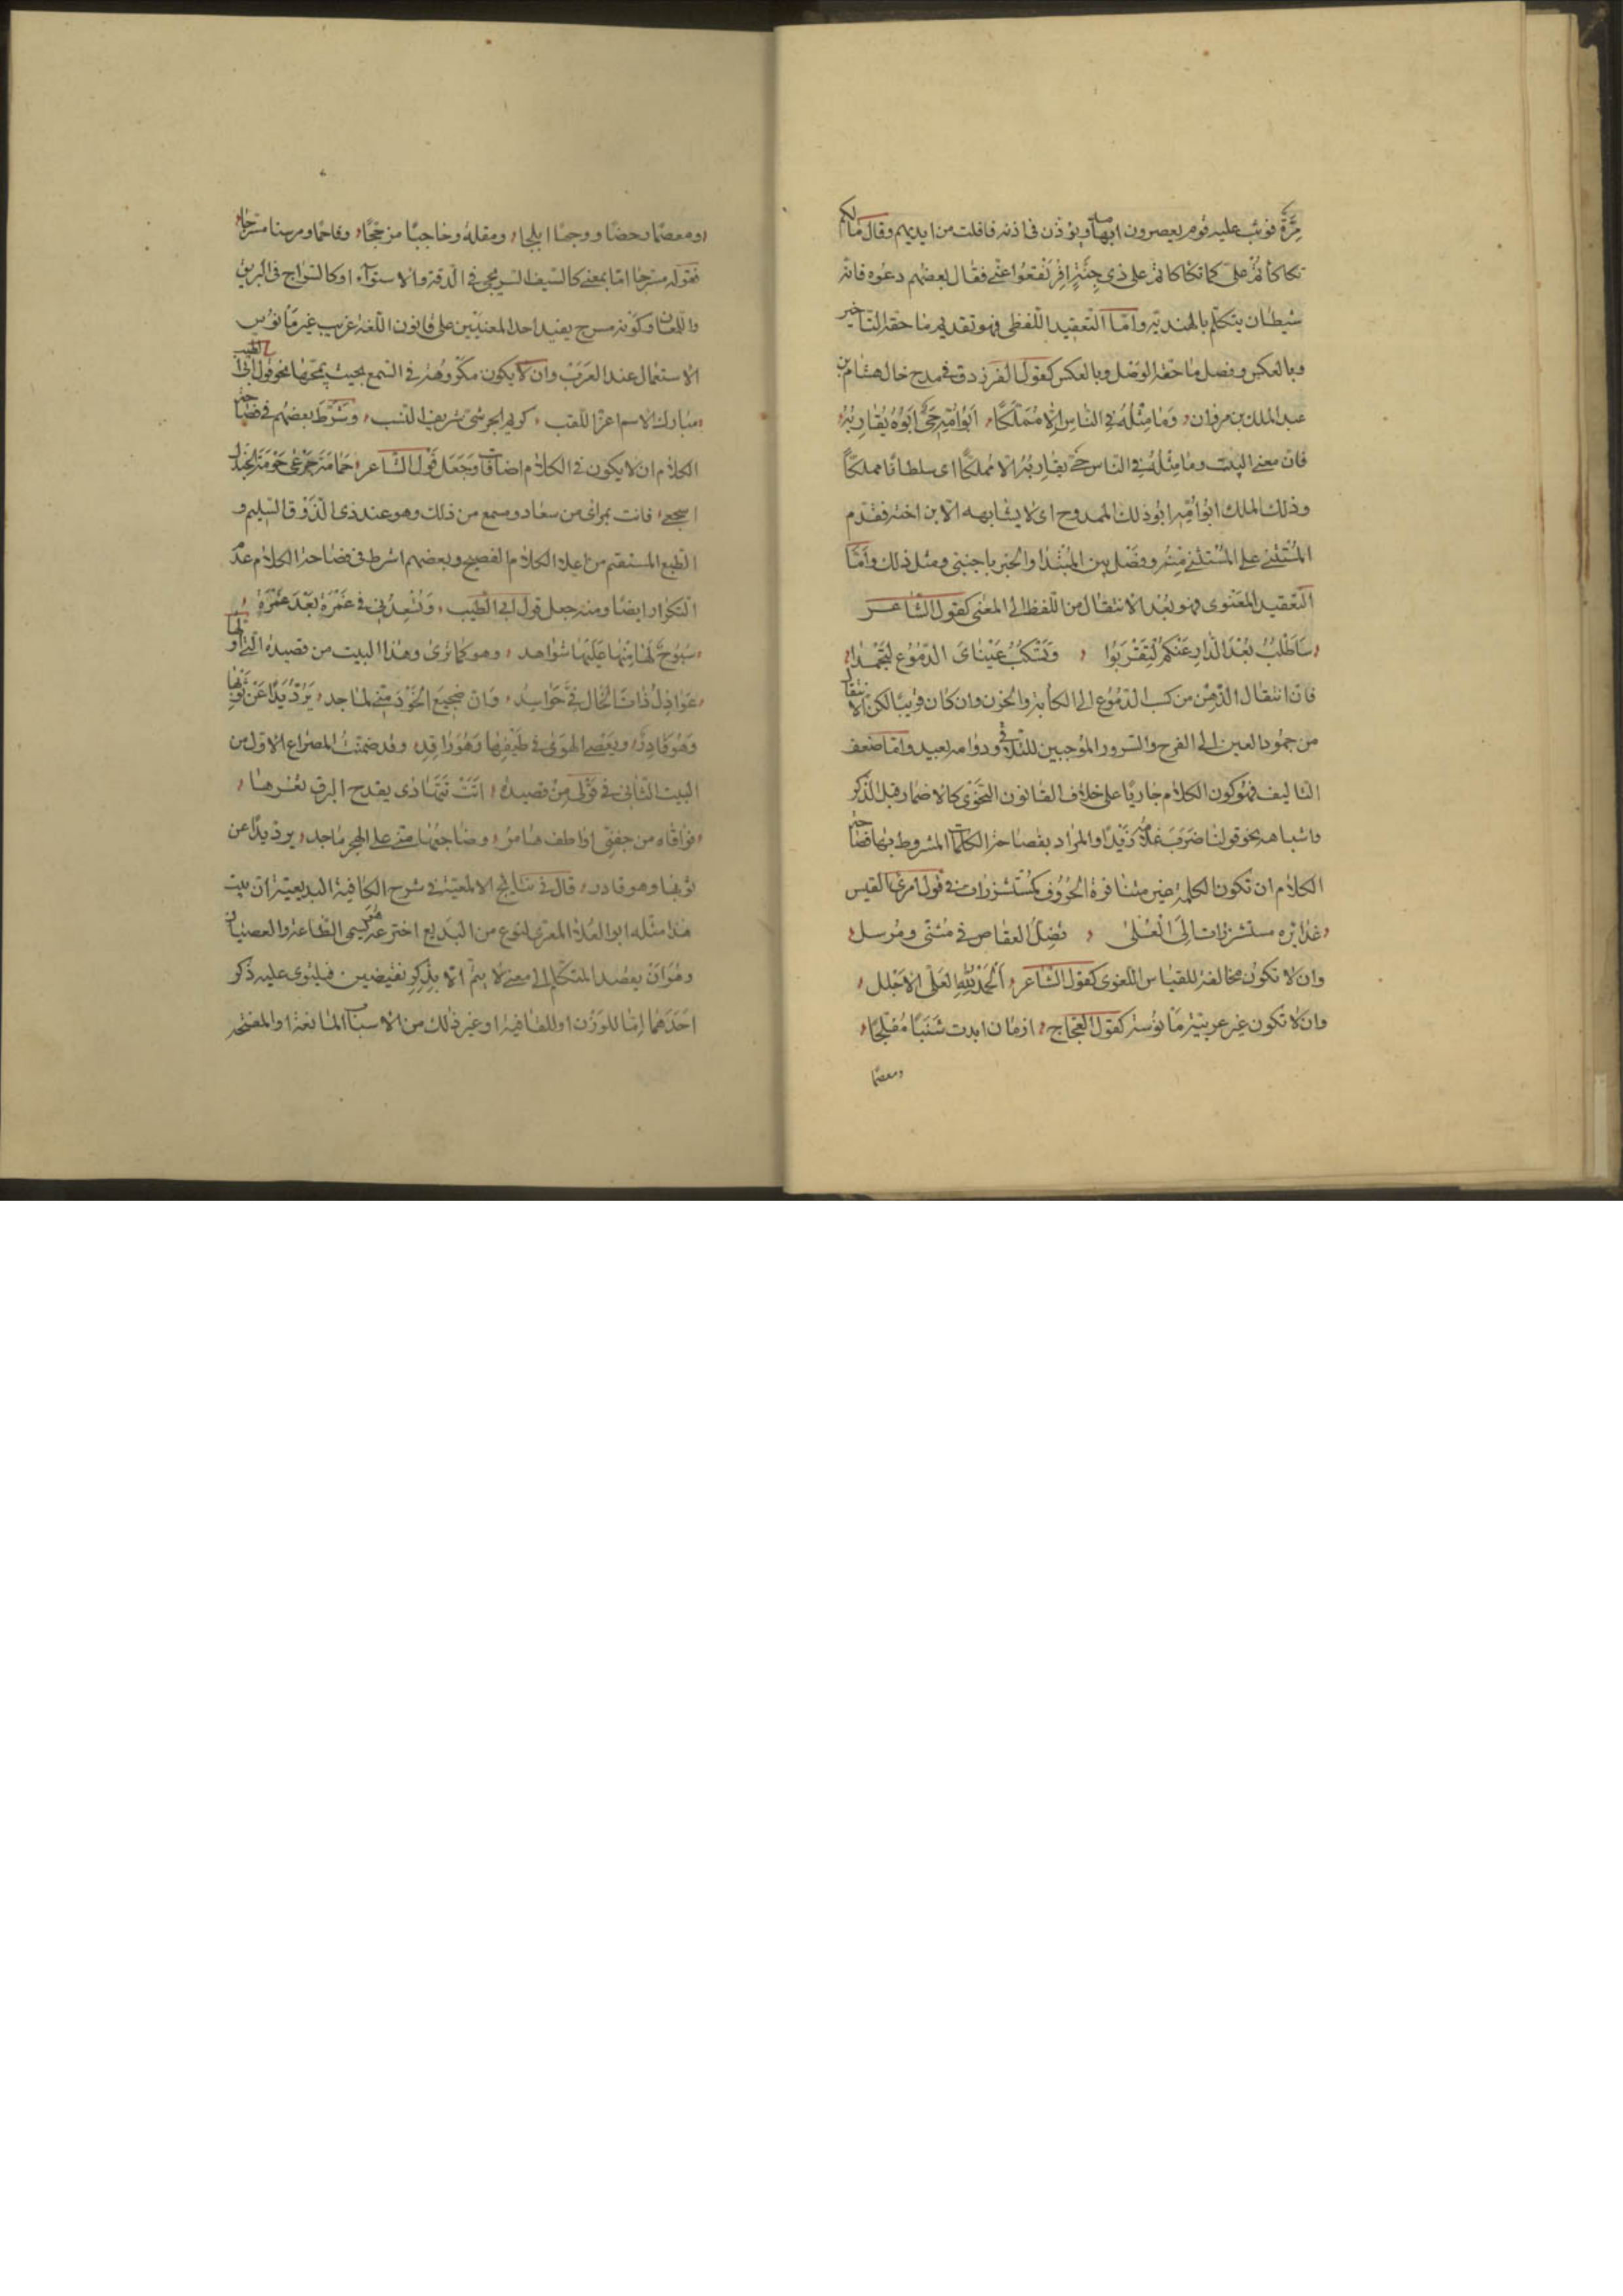 مِرَّةٌ فوثب عليه قوم يعصرون ابهامه ويؤذن في اذنه فافلت من ايديهم وقال مالكم
تكأكأتم علي كما تكأكأتم على ذي جِنَّةٍ افرنقعوا عني فقال بعضهم دعوه فانه
شيطان يتكلم بالهندية واما التعقيد اللفظي فهو تقديم ما حقه التاخير
وبالعكس وفصل ما حقه الوصل وبالعكس كقول الفرزدق في مدح خال هشام بن
عبد الملك بن مروان وَمَا مِثْلُهُ فِي النَّاسِ إِلَّا مُمَلَّكًا أَبُو أُمِّهِ حَيٌّ أَبُوهُ يُقَارِبُهُ
فان معنى البيت وما مثله في الناس حي يقاربه الا مملكًا اى سلطانا مملكًا
وذلك الملك ابو امّه ابو ذلك الممدوح اى لا يشابهه الا ابن اخته فقدم
المُسْتَثْنى على المُسْتَثْنى منه وفصل بين المبتدا والخبر باجنبي ومثل ذلك وَامّا
التعقيد المعنوى فهو بُعْد الانتقال من اللفظ الى المعنى كقول الشاعر
سَأَطْلُبُ بُعْدَ الدَّارِ عَنْكُمْ لِتَقْرَبُوا وَتَسْكُبُ عَيْنَاىَ الدُّمُوعَ لِتَجْمُدَا
فان انتقال الذهن من سكب الدموع الى الكأبة والحزن وان كان قريبًا لكن الانتقال
من جمود العين الى الفرح والسرور الموجبين للتلاقي ودوامه بعيد واما ضعف
التاليف فهو كون الكلام جاريًا على خلاف القانون النحوى كالاضمار قبل الذكر
واشباهه نحو قولنا ضَرَبَ غلامه زَيْدًا والمراد بفصاحة الكلمات المشروط بها فصاحة
الكلام ان تكون الكلمة غير متنافرة الحروف كمُسْتَشْزِرات في قول امرئ القيس
غدائره مستشزرات إلَى العُلى تضِلّ العقاص في مثنى ومُرسل
وان لا تكون مخالفة للقياس اللغوى كقول الشاعر اَلْحَمْدُ لِلّٰهِ العَلِيِّ الاَجْلَل
وان لا تكون غير عربية مأنوسة كقول العجاج ازمان ابدت شَنَبًا مُفلجًا
ومعصمًا
ومعصمًا رخصًا ووجهًا ابلجا ومقلة وحاجبًا مزججًا وفاحمًا ومرسنا مسرجا
فقوله مسرجا اما بمعنى كالسيف السريجي في الدقة والاستوآء او كالسراج في البريق
واللمعان وكونه مسرج يفيد احد المعنيين على قانون اللغة غريب غير مأنوس
الاستعمال عند العرب وان لا يكون مكروهة في السمع بحيث يمجها نحو قول ابي الطيب
مبارك الاسم اعز اللقب كريم الجرشى شريف النسب وشرط بعضهم في فصاحة
الكلام ان لا يكون في الكلام اضافات وجعل قول الشاعر حَمَامَةَ جَرْعى حَوْمَةِ الجندل
اسجعي فانت بمراى من سعاد ومسمع من ذلك وهو عند ذى الذوق السليم و
الطبع المستقيم من اعلا الكلام الفصيح وبعضهم اشرط في فصاحة الكلام عدم
التكرار ايضًا ومنه جعل قول ابي الطيب وَتُسْعِدُنِي في غَمْرَةٍ بَعْدَ غَمْرَةٍ
سَبُوحٌ لَهَا مِنْهَا عَلَيْهَا شواهد وهو كما ترى وهذا البيت من قصيدة التي اولها
عَوَاذِلُ ذَاتِ الْخَالِ فيَّ حَوَاسِد وَانّ ضجيع الخَوْد منّي لماجد يَرُدّ يَدًا عَنْ ثَوبِهَا
وَهُوَ قَادِرٌ ويَعْصِى الهَوى في طَيفِهَا وَهُوَ رَاقِد وقد ضمنت المصراع الاول من
البيت الثاني في قَوْلي من قصيدة اتَتْ تَتَهادى يقدح البرق ثغرها
فوافاه من جفني اواطف هامر وضاجعتها منى على الهجر ماجد يرد يدًا عن
ثوبها وهو قادر قال في نتايج الالمعية في شرح الكافية البديعية ان بيت
هذا مثله ابو العلاء المعري لنوع من البديع اخترعه هو يسمى الطاعة والعصيان
وهُوَ اَنْ يعصد المتكلم الى معنى لا يتم الا بذكر نقيضين فيلتوى عليه ذكر
اَحَدهما اما للوَزن او للقافية او غير ذلك من الاسباب المانعة او المعسّرة